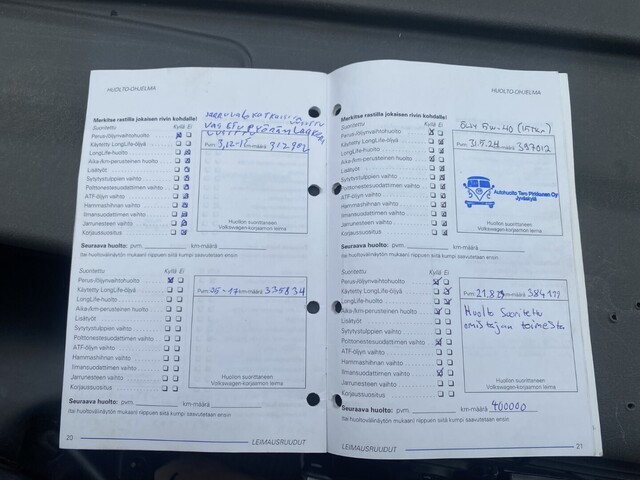 HUOLTO-OHJELMA
Merkitse rastilla jokaisen rivin kohdalle!
Suoritettu Kyllä Ei
Perus-/öljynvaihtohuolto
Käytetty LongLife-öljyä
LongLife-huolto
Aika-/km-perusteinen huolto
Lisätyöt
Sytytystulppien vaihto
Polttonestesuodattimen vaihto
ATF-öljyn vaihto
Hammashihnan vaihto
Ilmansuodattimen vaihto
Jarrunesteen vaihto
Korjaussuositus
Pvm. 3,12-15 km-määrä
Huollon suorittaneen
Volkswagen-korjaamon leima
Seuraava huolto: pvm. km-määrä
tai huoltovälinäytön mukaan riippuen siitä kumpi saavutetaan ensin
Suoritettu Kyllä Ei
Perus-/öljynvaihtohuolto
Käytetty LongLife-öljyä
LongLife-huolto
Aika-/km-perusteinen huolto
Lisätyöt
Sytytystulppien vaihto
Polttonestesuodattimen vaihto
ATF-öljyn vaihto
Hammashihnan vaihto
Ilmansuodattimen vaihto
Jarrunesteen vaihto
Korjaussuositus
Pvm. km-määrä 335834
Huollon suorittaneen
Volkswagen-korjaamon leima
Seuraava huolto: pvm. km-määrä
tai huoltovälinäytön mukaan riippuen siitä kumpi saavutetaan ensin
20 LEIMAUSRUUDUT
HUOLTO-OHJELMA
Merkitse rastilla jokaisen rivin kohdalle!
Suoritettu Kyllä Ei
Perus-/öljynvaihtohuolto
Käytetty LongLife-öljyä
LongLife-huolto
Aika-/km-perusteinen huolto
Lisätyöt
Sytytystulppien vaihto
Polttonestesuodattimen vaihto
ATF-öljyn vaihto
Hammashihnan vaihto
Ilmansuodattimen vaihto
Jarrunesteen vaihto
Korjaussuositus
5W-40
Pvm. 31.5.24 km-määrä
Autohuolto Tero Pirkkunen Oy
Jyväskylä
Huollon suorittaneen
Volkswagen-korjaamon leima
Seuraava huolto: pvm. km-määrä
tai huoltovälinäytön mukaan riippuen siitä kumpi saavutetaan ensin
Suoritettu Kyllä Ei
Perus-/öljynvaihtohuolto
Käytetty LongLife-öljyä
LongLife-huolto
Aika-/km-perusteinen huolto
Lisätyöt
Sytytystulppien vaihto
Polttonestesuodattimen vaihto
ATF-öljyn vaihto
Hammashihnan vaihto
Ilmansuodattimen vaihto
Jarrunesteen vaihto
Korjaussuositus
Pvm. km-määrä
Huolto Suoritettu
omistajan toimesta
Huollon suorittaneen
Volkswagen-korjaamon leima
Seuraava huolto: pvm. km-määrä 400000
tai huoltovälinäytön mukaan riippuen siitä kumpi saavutetaan ensin
LEIMAUSRUUDUT 21